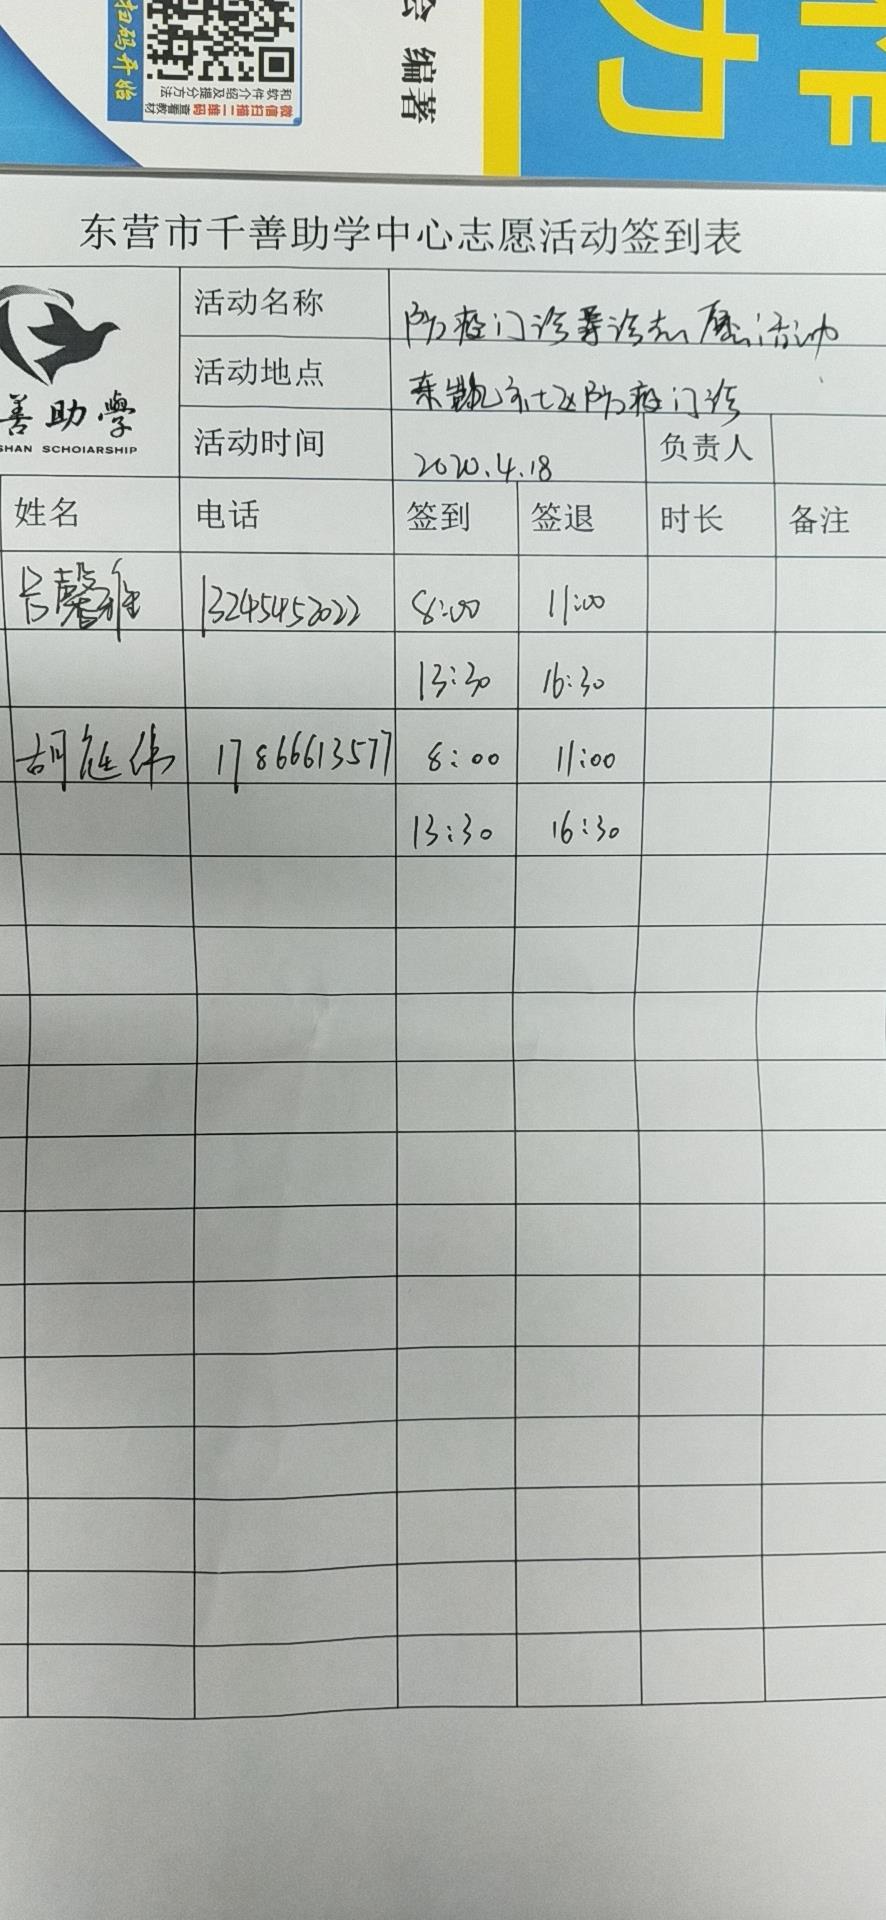 扫码开始
微信扫描二维码 查看教材
和软件介绍及提分方法
会 编著
作
力
东营市千善助学中心志愿活动签到表
善助學
SHAN SCHOIARSHIP
活动名称 防疫门诊导诊志愿活动
活动地点 东凯 社区防疫门诊
活动时间 2020.4.18 负责人
姓名 电话 签到 签退 时长 备注
馨雅 13245452022 8:00 11:00
13:30 16:30
胡延伟 17866613577 8:00 11:00
13:30 16:30